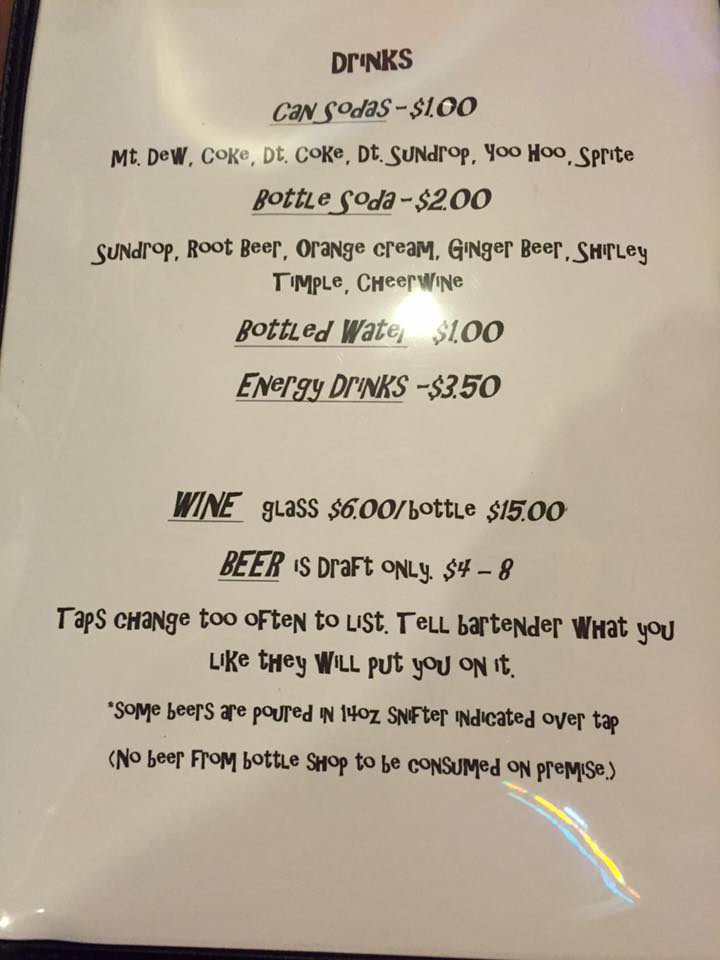 Drinks
Can Sodas - $1.00
Mt. Dew, Coke, Dt. Coke, Dt. Sundrop, Yoo Hoo, Sprite
Bottle Soda - $2.00
Sundrop, Root Beer, Orange Cream, Ginger Beer, Shirley
Timple, Cheerwine
Bottled Water $1.00
Energy Drinks - $3.50
WINE glass $6.00/bottle $15.00
BEER is Draft only. $4 - 8
Taps change too often to list. Tell bartender what you
like they will put you on it.
*Some beers are poured in 14oz snifter indicated over tap
(No beer from bottle shop to be consumed on premise.)